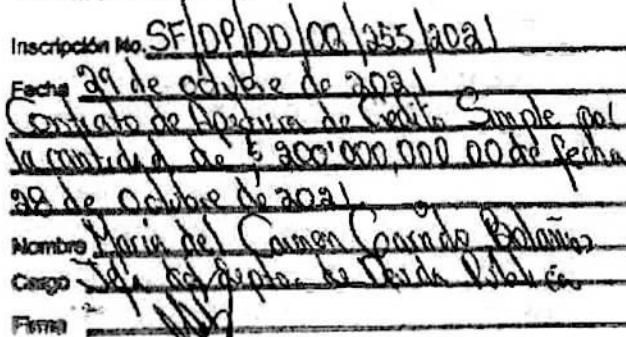 Inscripción No. SF/DP/DD/02/255/2021
Fecha 29 de octubre de 2021
Contrato de Apertura de Credito Simple por
la cantidad de $ 200'000,000.00 de fecha
28 de Octubre de 2021.
Nombre Maria del Carmen Garrido Bolaños
Cargo Jefa del Depto. de Deuda Pública
Firma